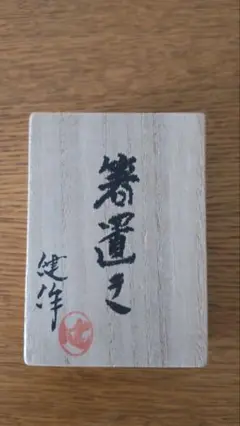 箸置き
健作